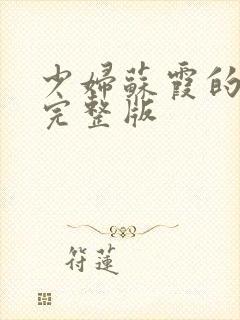 少婦蘇霞的
完整版
符蓮